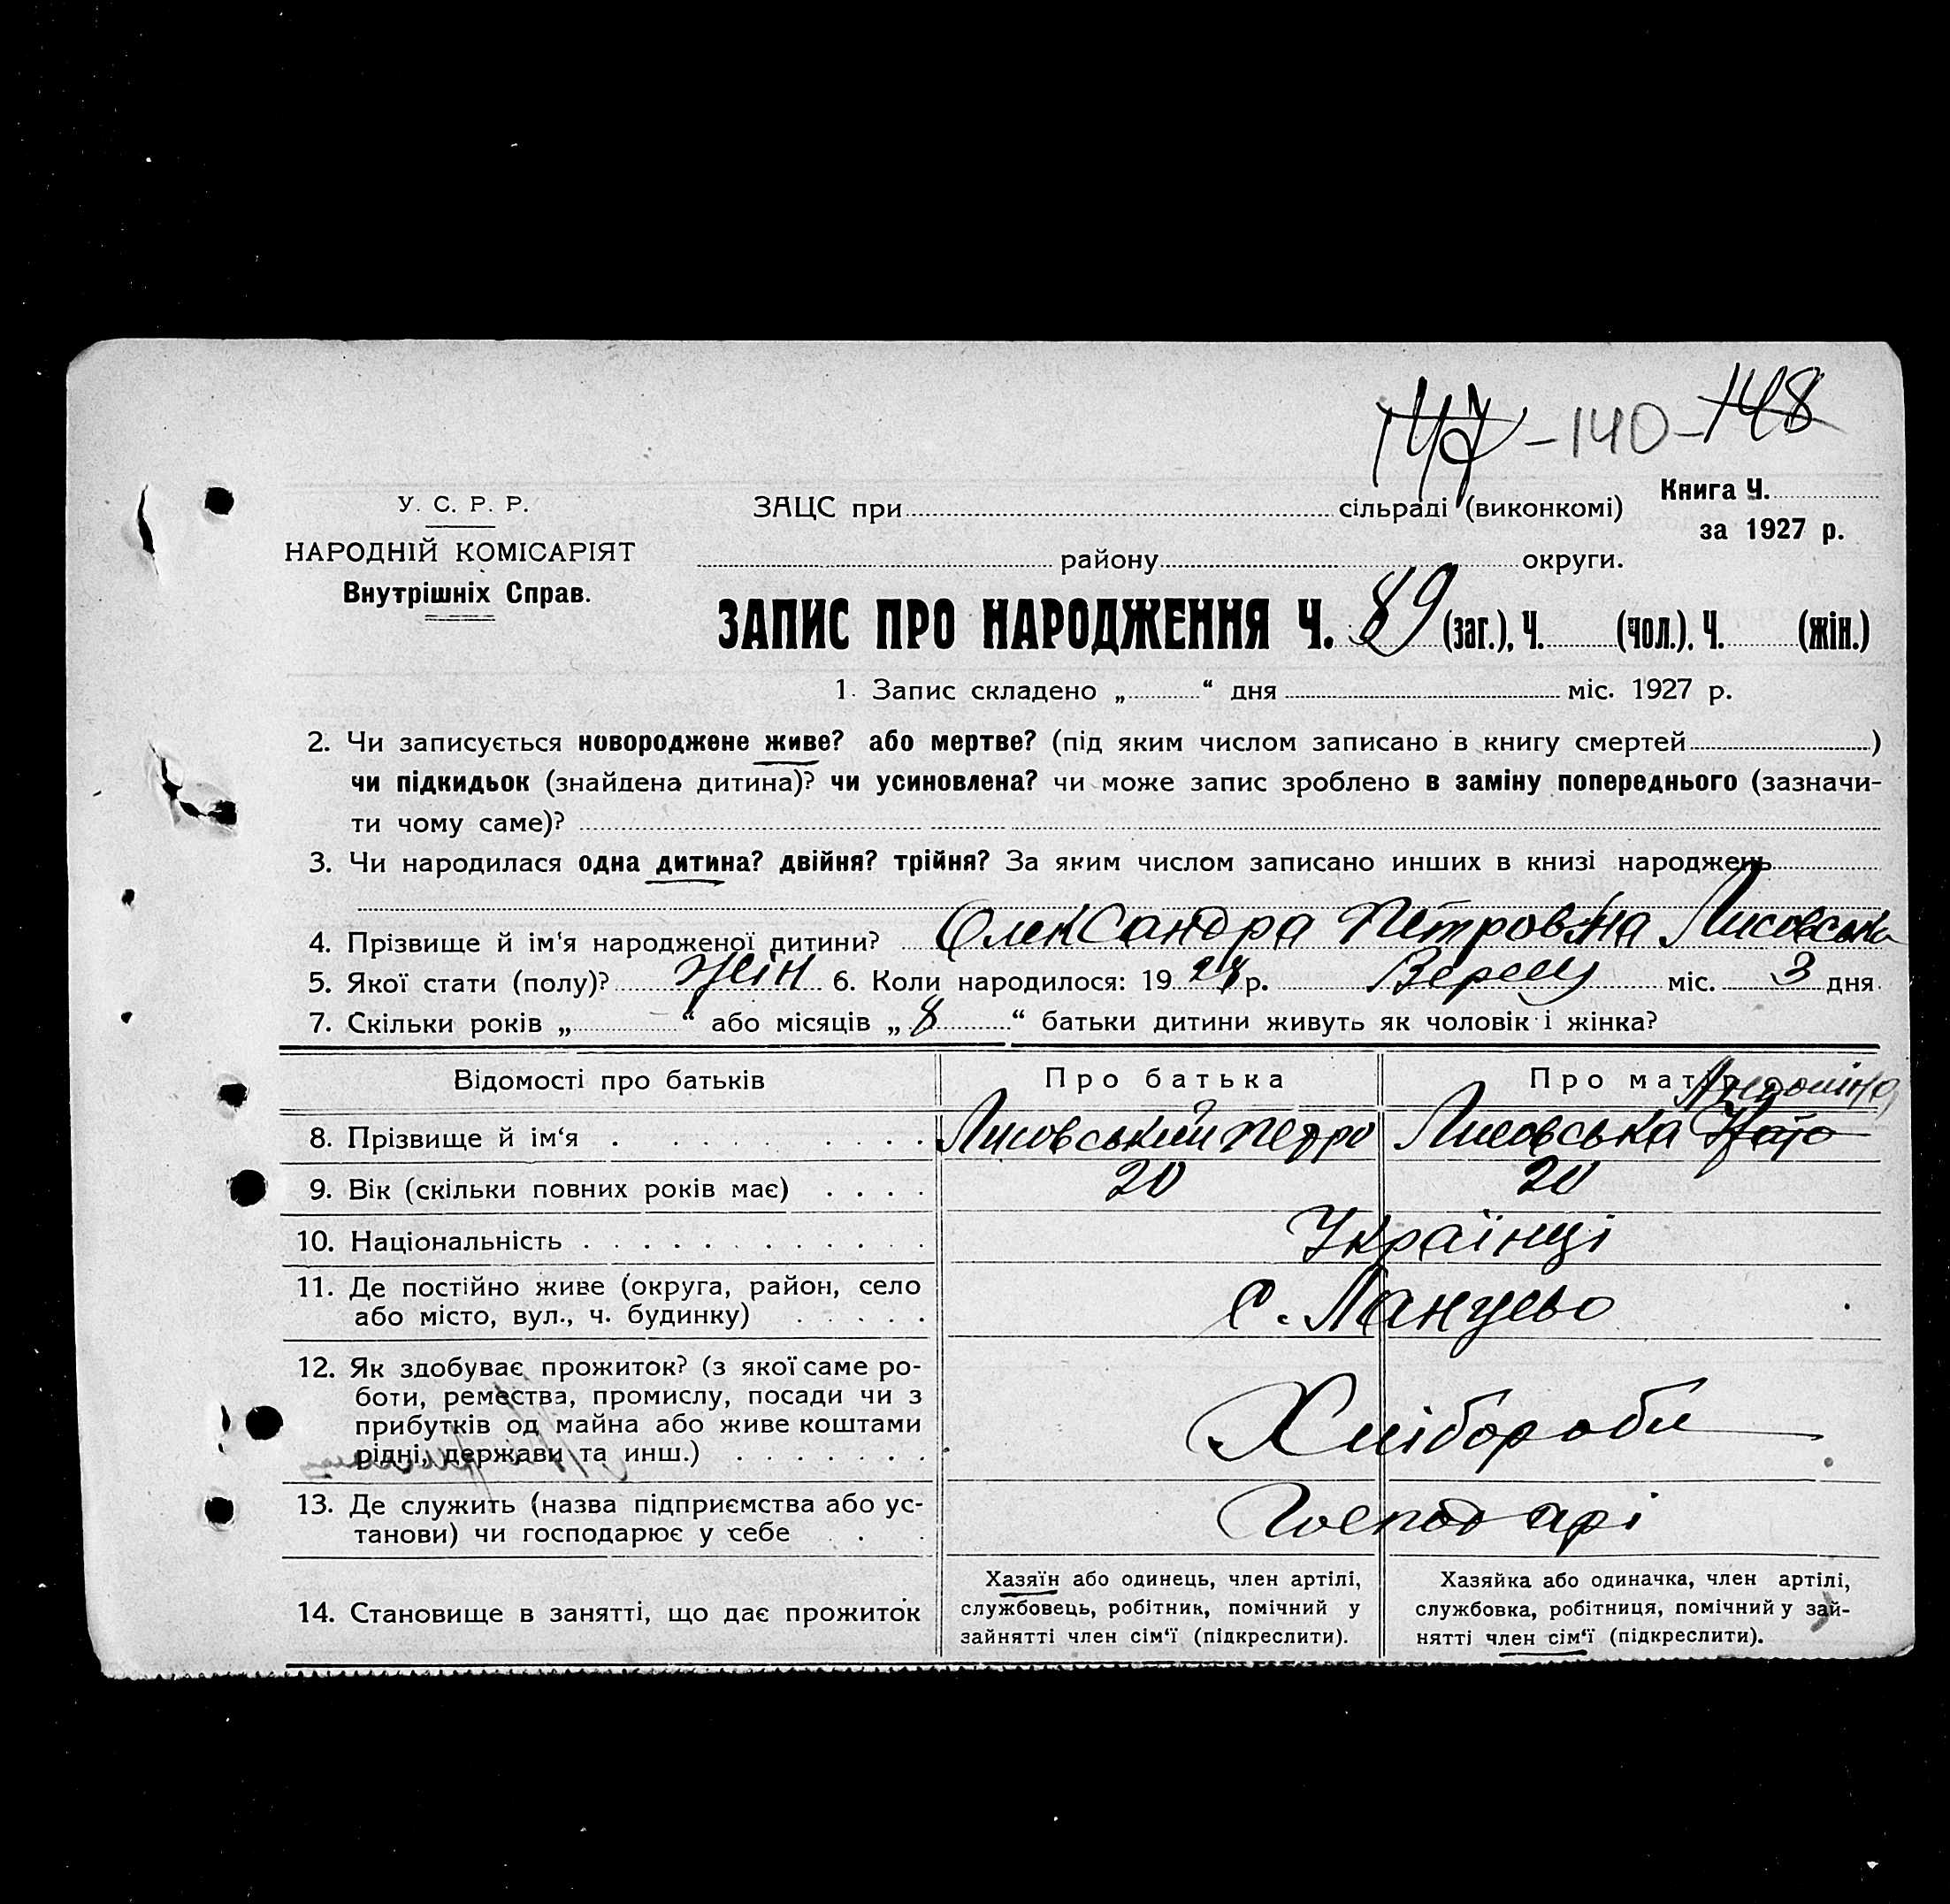 147 - 140 - 148
У. С. Р. Р.
НАРОДНІЙ КОМІСАРІЯТ
Внутрішніх Справ.
ЗАЦС при сільраді (виконкомі)
Книга Ч.
за 1927 р.
району округи.
ЗАПИС ПРО НАРОДЖЕННЯ Ч. 89 (заг.), Ч. (чол.), Ч. (жін.)
1. Запис складено „ “ дня міс. 1927 р.
2. Чи записується новороджене живе? або мертве? (під яким числом записано в книгу смертей )
чи підкидьок (знайдена дитина)? чи усиновлена? чи може запис зроблено в заміну попереднього (зазначи-
ти чому саме)?
3. Чи народилася одна дитина? двійня? трійня? За яким числом записано инших в книзі народжень
4. Прізвище й ім‘я народженої дитини? Олександра Петровна Лисовська
5. Якої стати (полу)? жін 6. Коли народилося: 19 р. міс. 3 дня.
7. Скільки років „ “ або місяців „ 8 “ батьки дитини живуть як чоловік і жінка?
Відомості про батьків Про батька Про матір
8. Прізвище й ім‘я Лисовський Петро Лисовська
9. Вік (скільки повних років має) 20 20
10. Національність Українці
11. Де постійно живе (округа, район, село
або місто, вул., ч. будинку) с.
12. Як здобуває прожиток? (з якої саме ро-
боти, ремества, промислу, посади чи з
прибутків од майна або живе коштами
рідні, держави та инш.) Хлібороби
13. Де служить (назва підприємства або ус-
танови) чи господарює у себе Господарі
14. Становище в занятті, що дає прожиток
Хазяїн або одинець, член артілі,
службовець, робітник, помічний у
зайнятті член сім‘ї (підкреслити).
Хазяйка або одиначка, член артілі,
службовка, робітниця, помічний у зай-
нятті член сім‘ї (підкреслити).